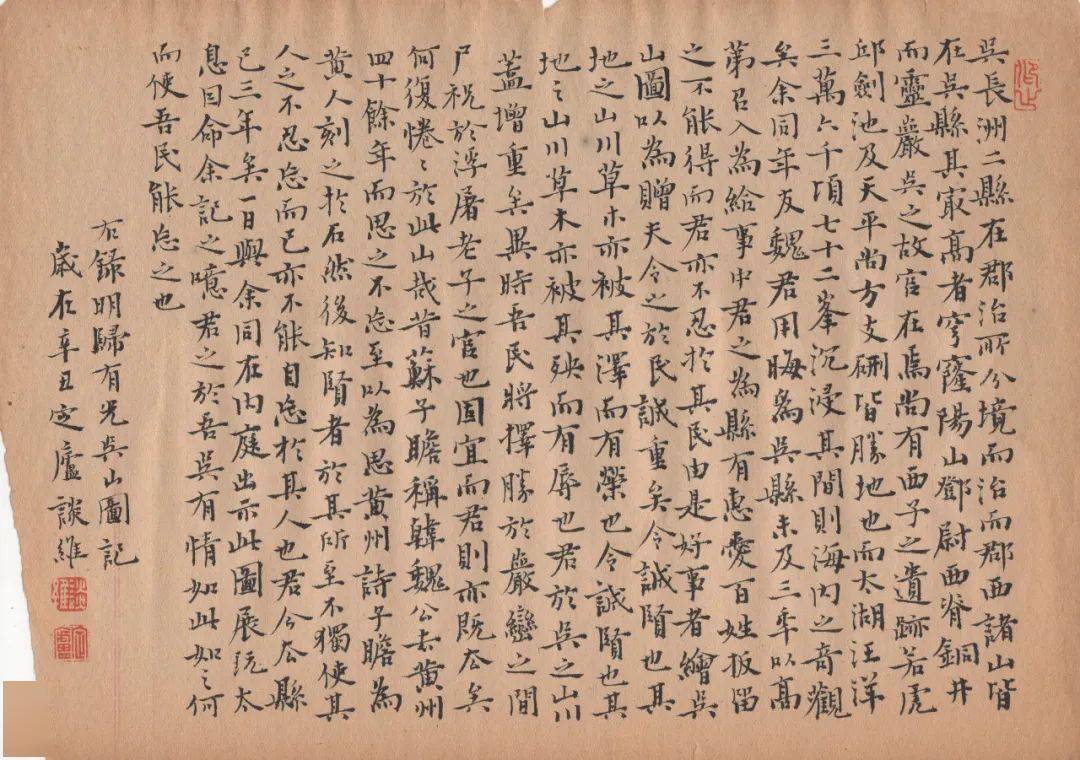 吳長洲二縣在郡治所分境而治而郡西諸山皆
在吳縣其冣高者穹窿陽山鄧尉西脊銅井
而靈巖吳之故宮在焉尚有西子之遺跡若虎
邱劍池及天平尚方支硎皆勝地也而太湖汪洋
三萬六千頃七十二峯沉浸其間則海內之奇觀
矣余同年友魏君用晦為吳縣未及三年以高
第召入為給事中君之為縣有惠愛百姓扳留
之不能得而君亦不忍於其民由是好事者繪吳
山圖以為贈夫令之於民誠重矣令誠賢也其
地之山川草木亦被其澤而有榮也令誠賢也其
地之山川草木亦被其殃而有辱也君於吳之山川
蓋增重矣異時吾民將擇勝於巖巒之間
尸祝於浮屠老子之宮也固宜而君則亦既去矣
何復惓〻於此山哉昔蘇子瞻稱韓魏公去黃州
四十餘年而思之不忘至以為思黃州詩子瞻為
黃人刻之於石然後知賢者於其所至不獨使其
人之不忍忘而已亦不能自忘於其人也君今去縣
已三年矣一日與余同在內庭出示此圖展玩太
息因命余記之噫君之於吾吳有情如此如之何
而使吾民能忘之也
右錄明歸有光吳山圖記
歲在辛丑定廬談維
談維
定廬